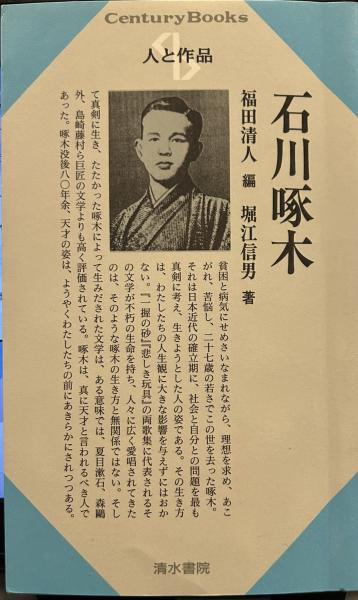 CenturyBooks
人と作品
石川啄木
福田清人 編 堀江信男 著
貧困と病気にせめさいなまれながら、理想を求め、あこ
がれ、苦悩し、二十七歳の若さでこの世を去った啄木。
それは日本近代の確立期に、社会と自分との問題を最も
真剣に考え、生きようとした人の姿である。その生き方
は、わたしたちの人生観に大きな影響を与えずにはおか
ない。『一握の砂』『悲しき玩具』の両歌集に代表されるそ
の文学が不朽の生命を持ち、人々に広く愛唱されてきた
のは、そのような啄木の生き方と無関係ではない。そし
て真剣に生き、たたかった啄木によって生みだされた文学は、ある意味では、夏目漱石、森鷗
外、島崎藤村ら巨匠の文学よりも高く評価されている。啄木は、真に天才と言われるべき人で
あった。啄木没後八〇年余、天才の姿は、ようやくわたしたちの前にあきらかにされつつある。
清水書院